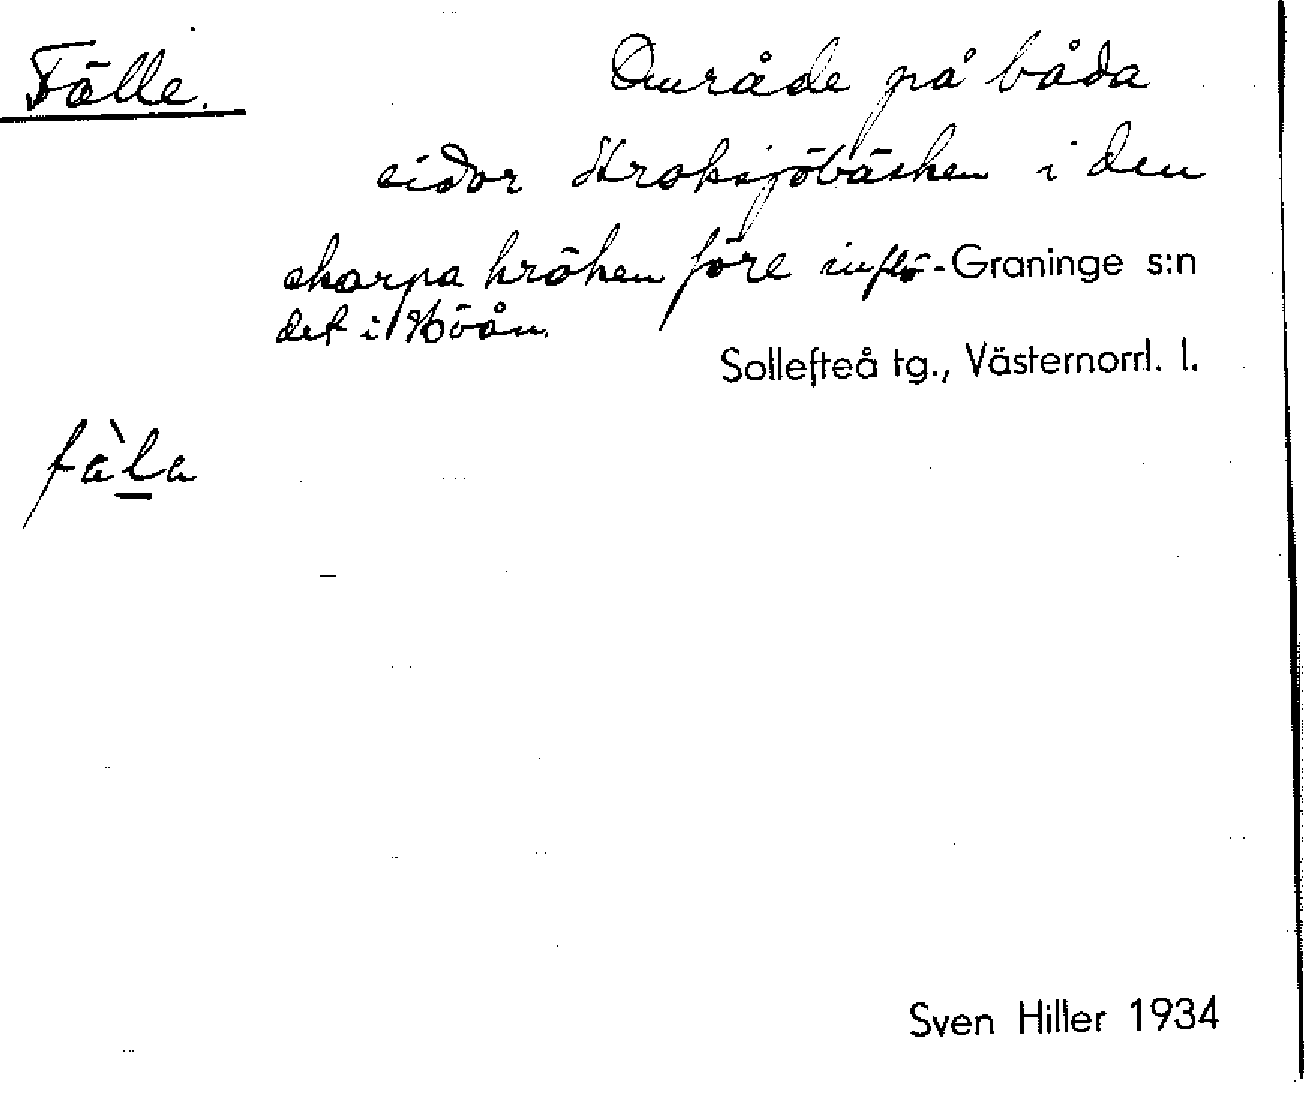 Fälle.
Område på båda
sidor Kroksjöbäcken i den
skarpa kröken före inflö-
Graninge s:n
det i Höån.
Sollefteå tg., Västernorrl. l.
fàla
Sven Hiller 1934